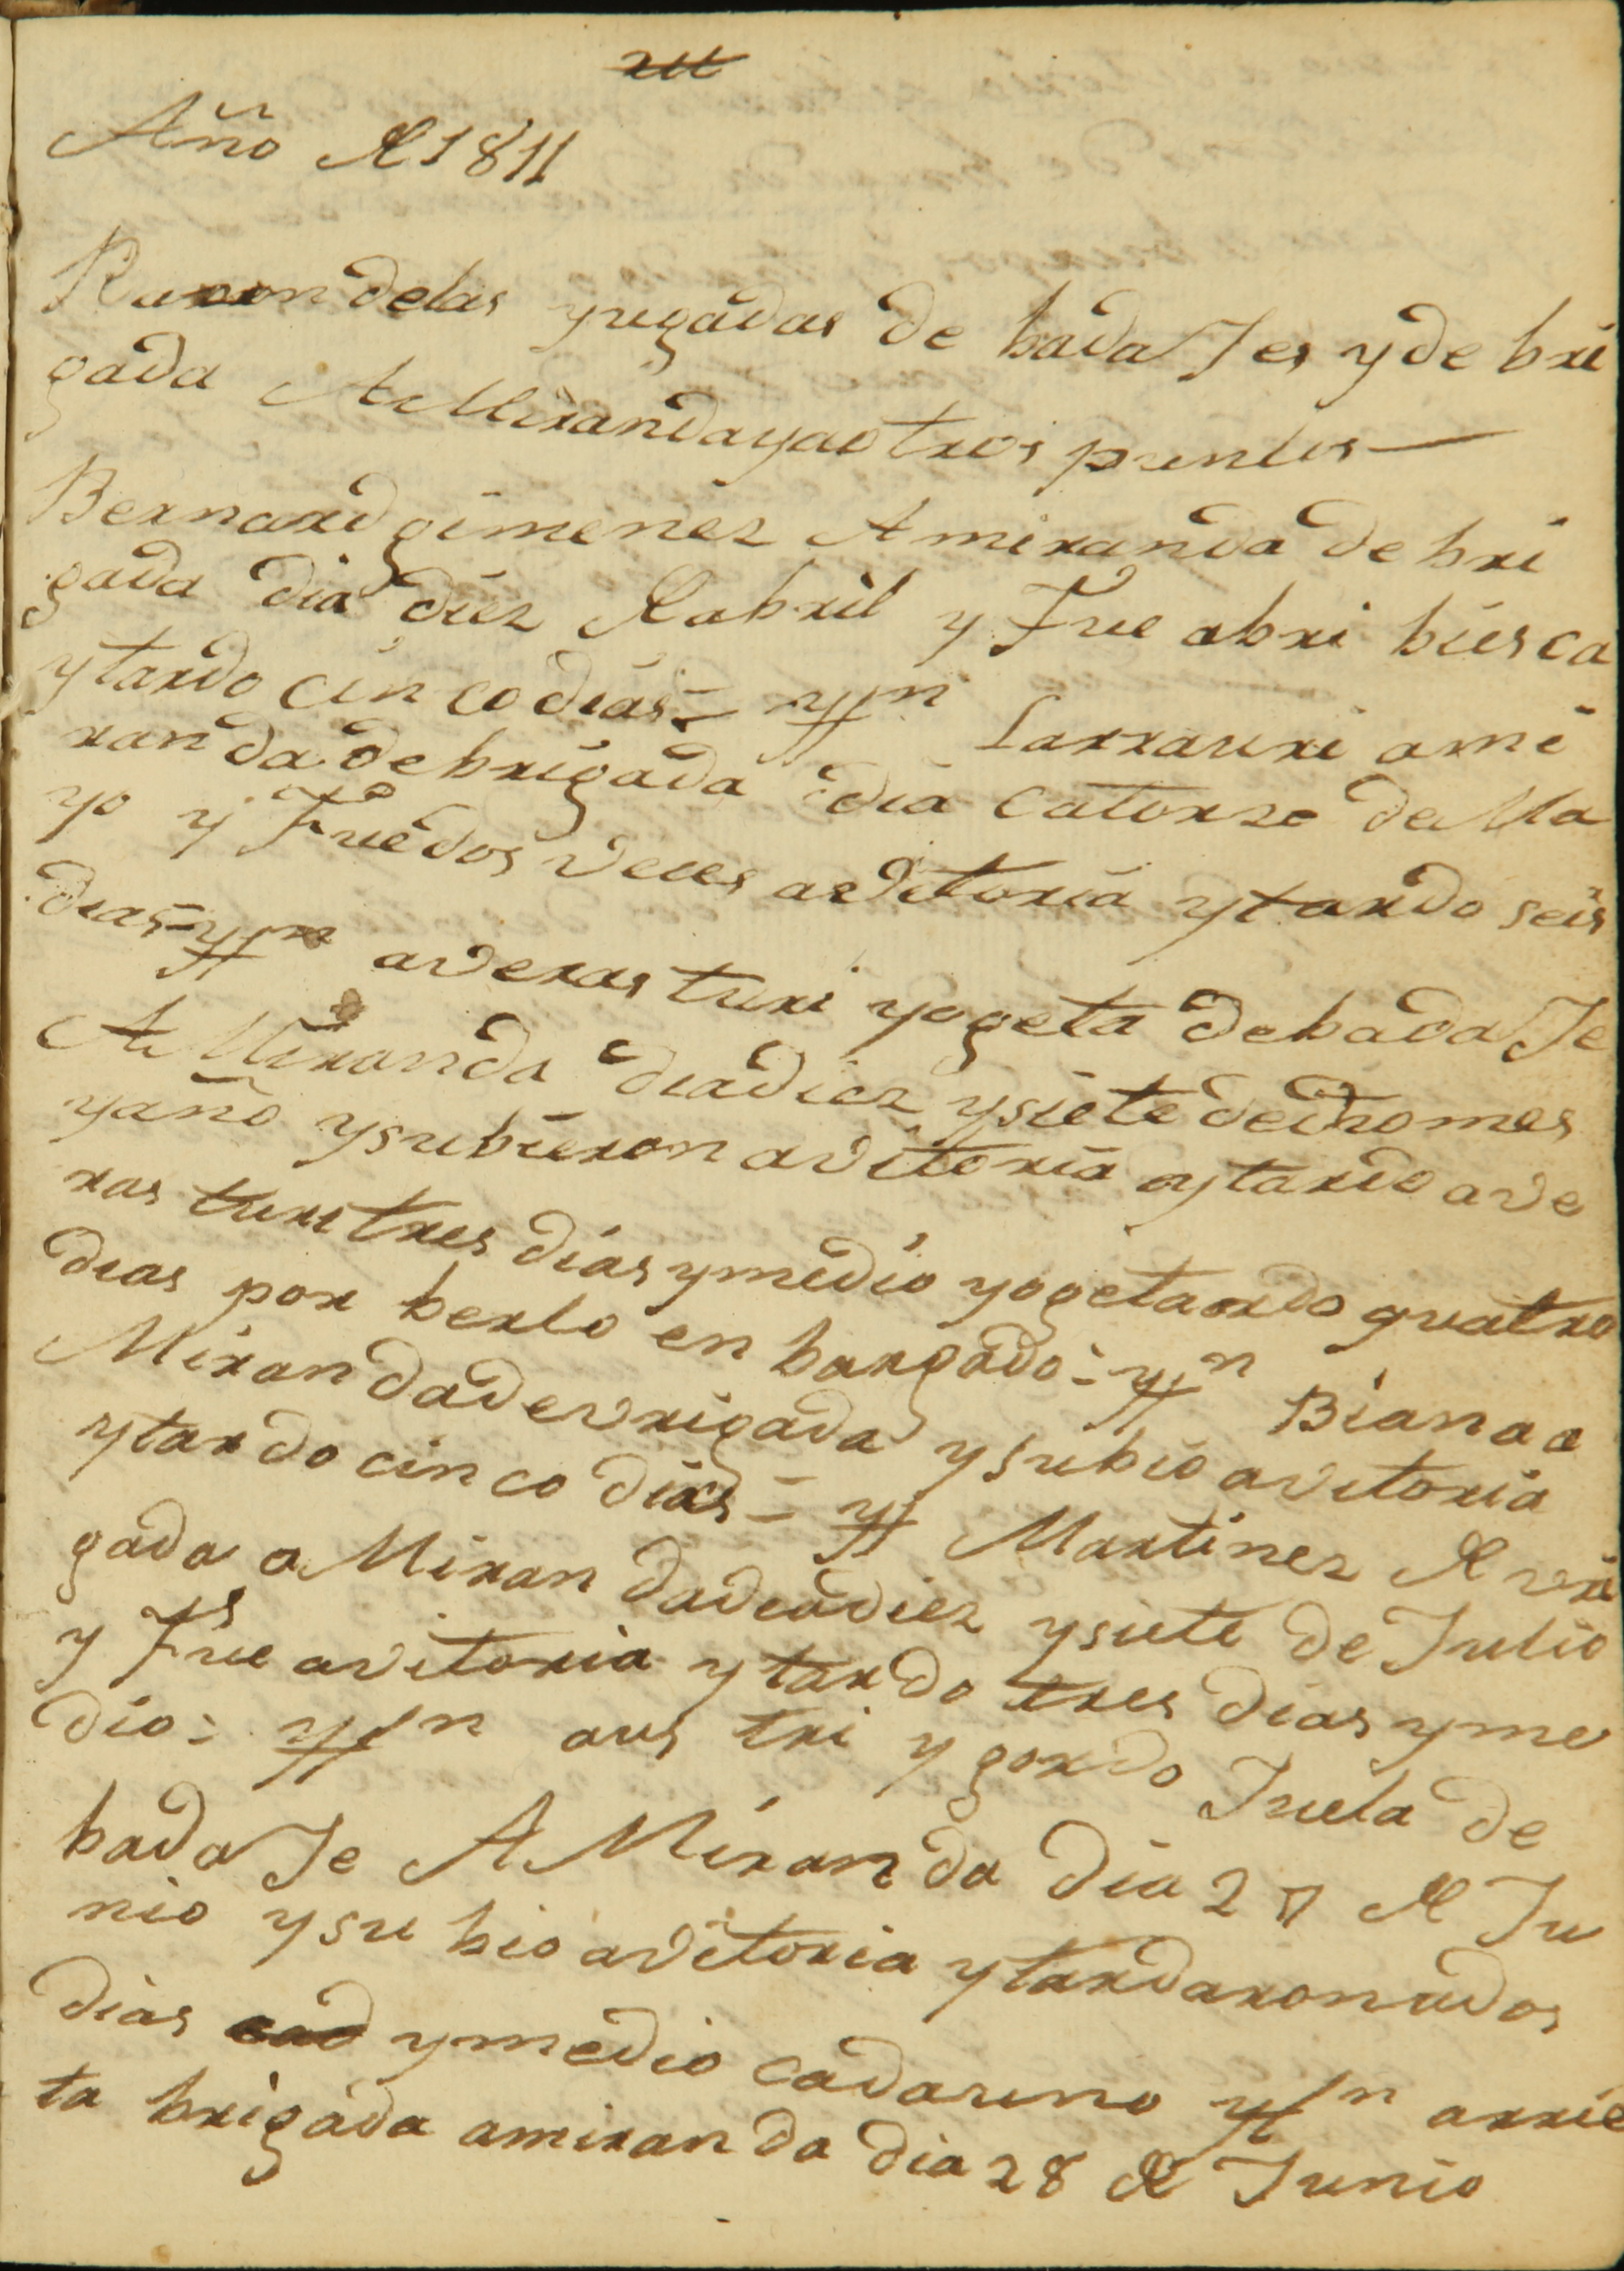 Año de 1811
Razon delas yugadas de badaJes y de bri
gada A Miranda yaotros puntos
Bernard gimenez A miranda de bri
gada dia diez de abril y Fue abri biesca
y tardo cinco dias = Larrauri ami
randa de brigada dia catorze de Ma
yo y Fue dos veces avitoria y tardo seis
dias = averasturi yogeta de badaJe
A Miranda dia diez ysiete de dho mes
yaño ysubieron avitoria ytardo ave
rasturi tres dias ymedio yogetardo quatro
dias por berlo en bargado = Biana a
Miranda devrigada ysubio avitoria
ytardo cinco dias = Martinez de vri
gada a Miranda dia diez ysiete de Julio
y Fue avitoria ytardo tres dias yme
dio = aus tri y gordo Juela de
badaJe A Miranda dia 27 de Ju
nio ysubio avitoria ytardaron ados
dias ymedio cadauno arrie
ta brigada amiranda dia 28 de Junio